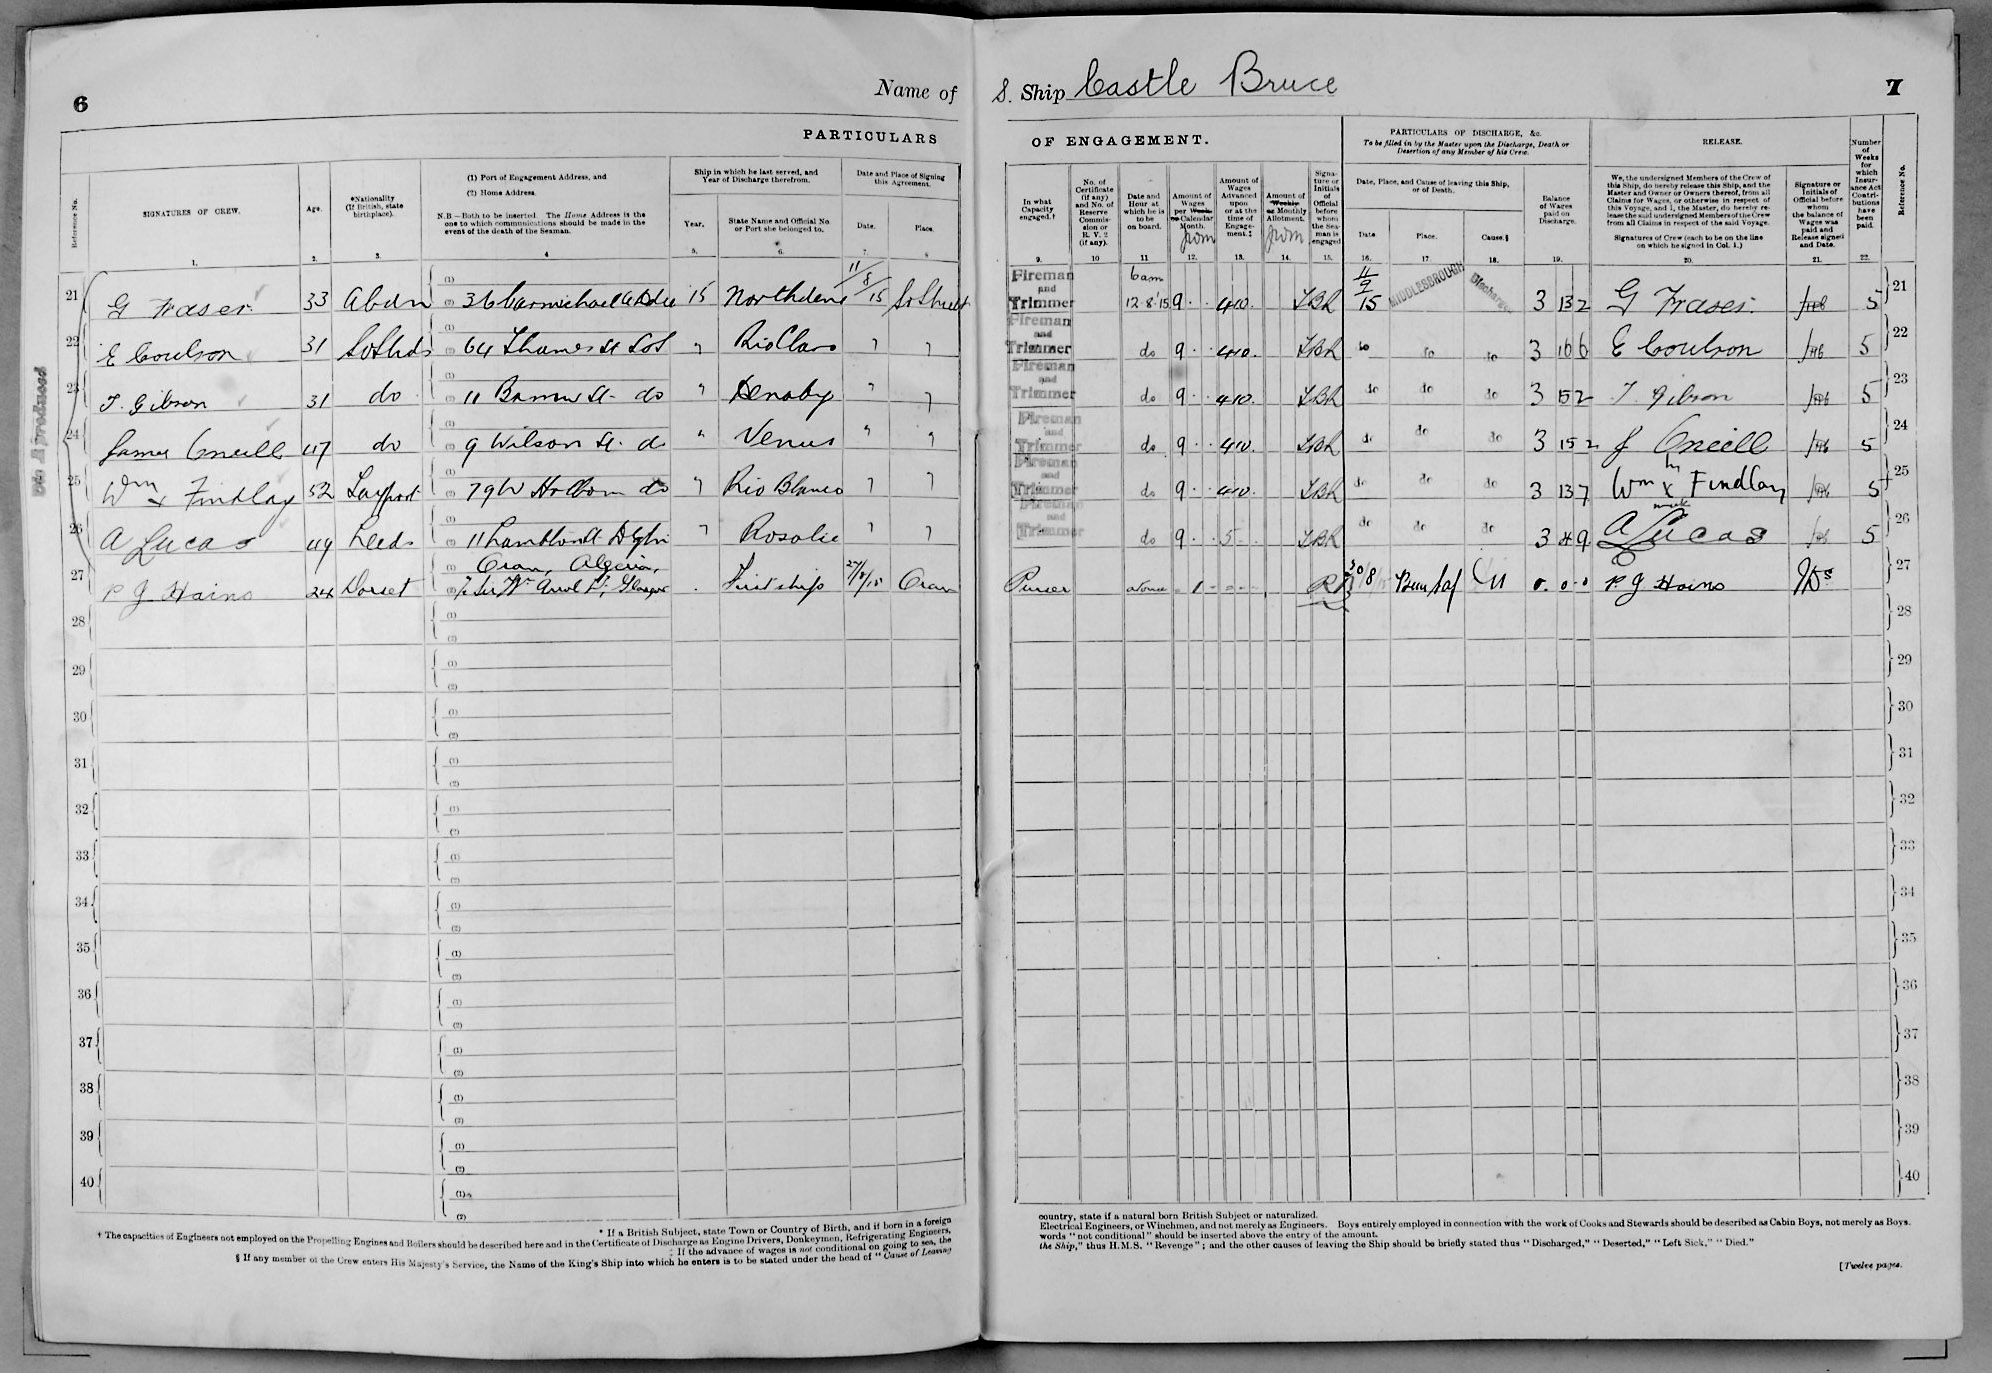 6
Name of
PARTICULARS
Reference No.
SIGNATURES OF CREW.
Age.
*Nationality
(If British, state
birthplace).
(1) Port of Engagement Address, and
(2) Home Address.
N.B.—Both to be inserted. The Home Address is the
one to which communications should be made in the
event of the death of the Seaman.
Ship in which he last served, and
Year of Discharge therefrom.
Year.
State Name and Official No.
or Port she belonged to.
Date and Place of Signing
this Agreement.
Date.
Place.
1. 2. 3. 4 5. 6. 7. 8
21 G Fraser 33 Abdn 36 Carmichael 15 11/8/15
22 E Coulson 31 64 Thames St Rio Claro " "
23 T. Gibson 31 do 11 St. do " Denaby " "
24 James Oneill 47 do 9 Wilson St. do " Venus " "
25 Wm x Findlay 52 79 W Holborn do " Rio Blanco " "
26 A Lucas 49 Leeds 11 Lambton St " Rosalie " "
Oran, Algeria,
27 P J Hains 24 Dorset c/o Sir Wm Arrol Lt, Glasgow First ship 27/8/15 Oran
28
29
30
31
32
33
34
35
36
37
38
39
40
* If a British Subject, state Town or Country of Birth, and if born in a foreign
† The capacities of Engineers not employed on the Propelling Engines and Boilers should be described here and in the Certificate of Discharge as Engine Drivers, Donkeymen, Refrigerating Engineers,
‡ If the advance of wages is not conditional on going to sea, the
§ If any member of the Crew enters His Majesty's Service, the Name of the King's Ship into which he enters is to be stated under the head of "Cause of Leaving
S. Ship Castle Bruce
7
OF ENGAGEMENT.
In what
Capacity
engaged.†
No. of
Certificate
(if any)
and No. of
Reserve
Commis-
sion or
R. V. 2
(if any).
Date and
Hour at
which he is
to be
on board.
Amount of
Wages
per Week
or Calendar
Month.
Amount of
Wages
Advanced
upon
or at the
time of
Engage-
ment.‡
Amount of
Weekly
or Monthly
Allotment.
Signa-
ture or
Initials
of
Official
before
whom
the Sea-
man is
engaged
PARTICULARS OF DISCHARGE, &c.
To be filled in by the Master upon the Discharge, Death or
Desertion of any Member of his Crew.
Date, Place, and Cause of leaving this Ship,
or of Death.
Date
Place.
Cause.§
Balance
of Wages
paid on
Discharge.
RELEASE.
We, the undersigned Members of the Crew of
this Ship, do hereby release this Ship, and the
Master and Owner or Owners thereof, from all
Claims for Wages, or otherwise in respect of
this Voyage, and I, the Master, do hereby re-
lease the said undersigned Members of the Crew
from all Claims in respect of the said Voyage.
Signatures of Crew (each to be on the line
on which he signed in Col. 1.)
Signature or
Initials of
Official before
whom
the balance of
Wages was
paid and
Release signed
and Date.
Number
of
Weeks
for
which
Insur-
ance Act
Contri-
butions
have
been
paid.
Reference No.
9. 10 11 12. 13. 14. 15. 16. 17 18. 19. 20. 21. 22.
Fireman and Trimmer 6 am 12.8.15 9 4 10 11/9/15 MIDDLESBROUGH Discharge 3 13 2 G Fraser 5 21
Fireman and Trimmer do 9 4 10 do do do 3 16 6 E Coulson 5 22
Fireman and Trimmer do 9 4 10 do do do 3 15 2 T Gibson 5 23
Fireman and Trimmer do 9 4 10 do do do 3 15 2 J Oneill 5 24
Fireman and Trimmer do 9 4 10 do do do 3 13 7 Wm x Findlay 5 25
Fireman and Trimmer do 9 5 do do do 3 4 9 A Lucas 5 26
Purser 1 30/8 0 . 0 . 0 P J Hains 27
28
29
30
31
32
33
34
35
36
37
38
39
40
country, state if a natural born British Subject or naturalized.
Electrical Engineers, or Winchmen, and not merely as Engineers. Boys entirely employed in connection with the work of Cooks and Stewards should be described as Cabin Boys, not merely as Boys.
words "not conditional" should be inserted above the entry of the amount.
the Ship," thus H.M.S. "Revenge"; and the other causes of leaving the Ship should be briefly stated thus "Discharged," "Deserted," "Left Sick," "Died."
[Twelve pages.